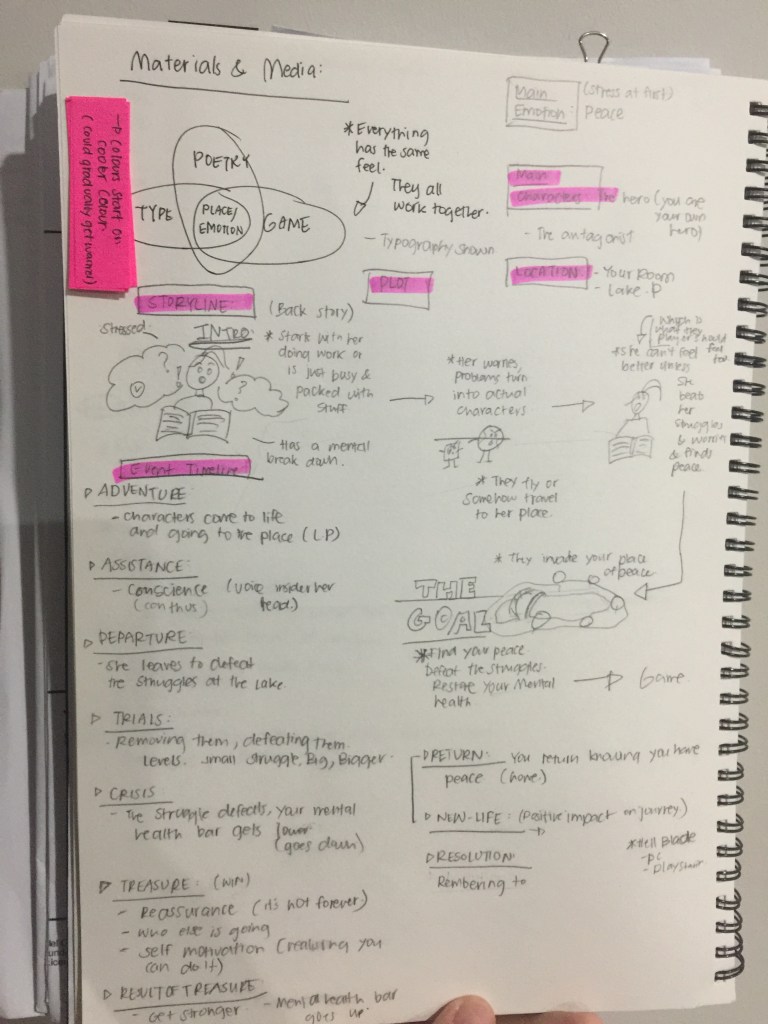 Materials & Media:
→ Colours start on
cooler colour.
(could gradually get warmer)
POETRY
TYPE
PLACE/
EMOTION
GAME
* Everything
has the same
feel.
They all
work together.
- Typography shown
Main (stress at first)
Emotion: Peace
Main
Characters: The hero (you are
your own
hero)
- The antagonist
LOCATION: - Your Room
- Lake. P
PLOT
STORYLINE: (Back story)
Stressed.
INTRO:
* Start with her
doing work or
is just busy &
packed with
stuff
- Has a mental
break down.
* Her worries,
problems turn
into actual
characters
* They fly or
somehow travel
to her place.
which is
what the
player should
feel too
* she can't feel
better unless
she
beat
her
struggles
& worries
& finds
peace
Event Timeline
ADVENTURE:
- characters come to life
and going to the place (L.P)
ASSISTANCE:
- Conscience (voice inside her
head.)
DEPARTURE:
- she leaves to defeat
the struggles at the lake.
* They invade your place
of peace
THE
GOAL
* Find your peace
Defeat the struggles.
Restore your Mental
health
Game.
TRIALS:
- Removing them, defeating them.
levels. small struggle, Big, Bigger.
CRISIS
- The struggle defeats, your mental
health bar gets lower
(goes down)
TREASURE: (win)
- Reassurance (it's not forever)
- who else is going
- self motivation (realising you
can do it)
RESULT OF TREASURE
- Get stronger - Mental health bar
goes up.
RETURN: You return knowing you have
peace (home.)
NEW-LIFE: (Positive impact on journey)
RESOLUTION:
Rembering to
* Hell Blade
- PC